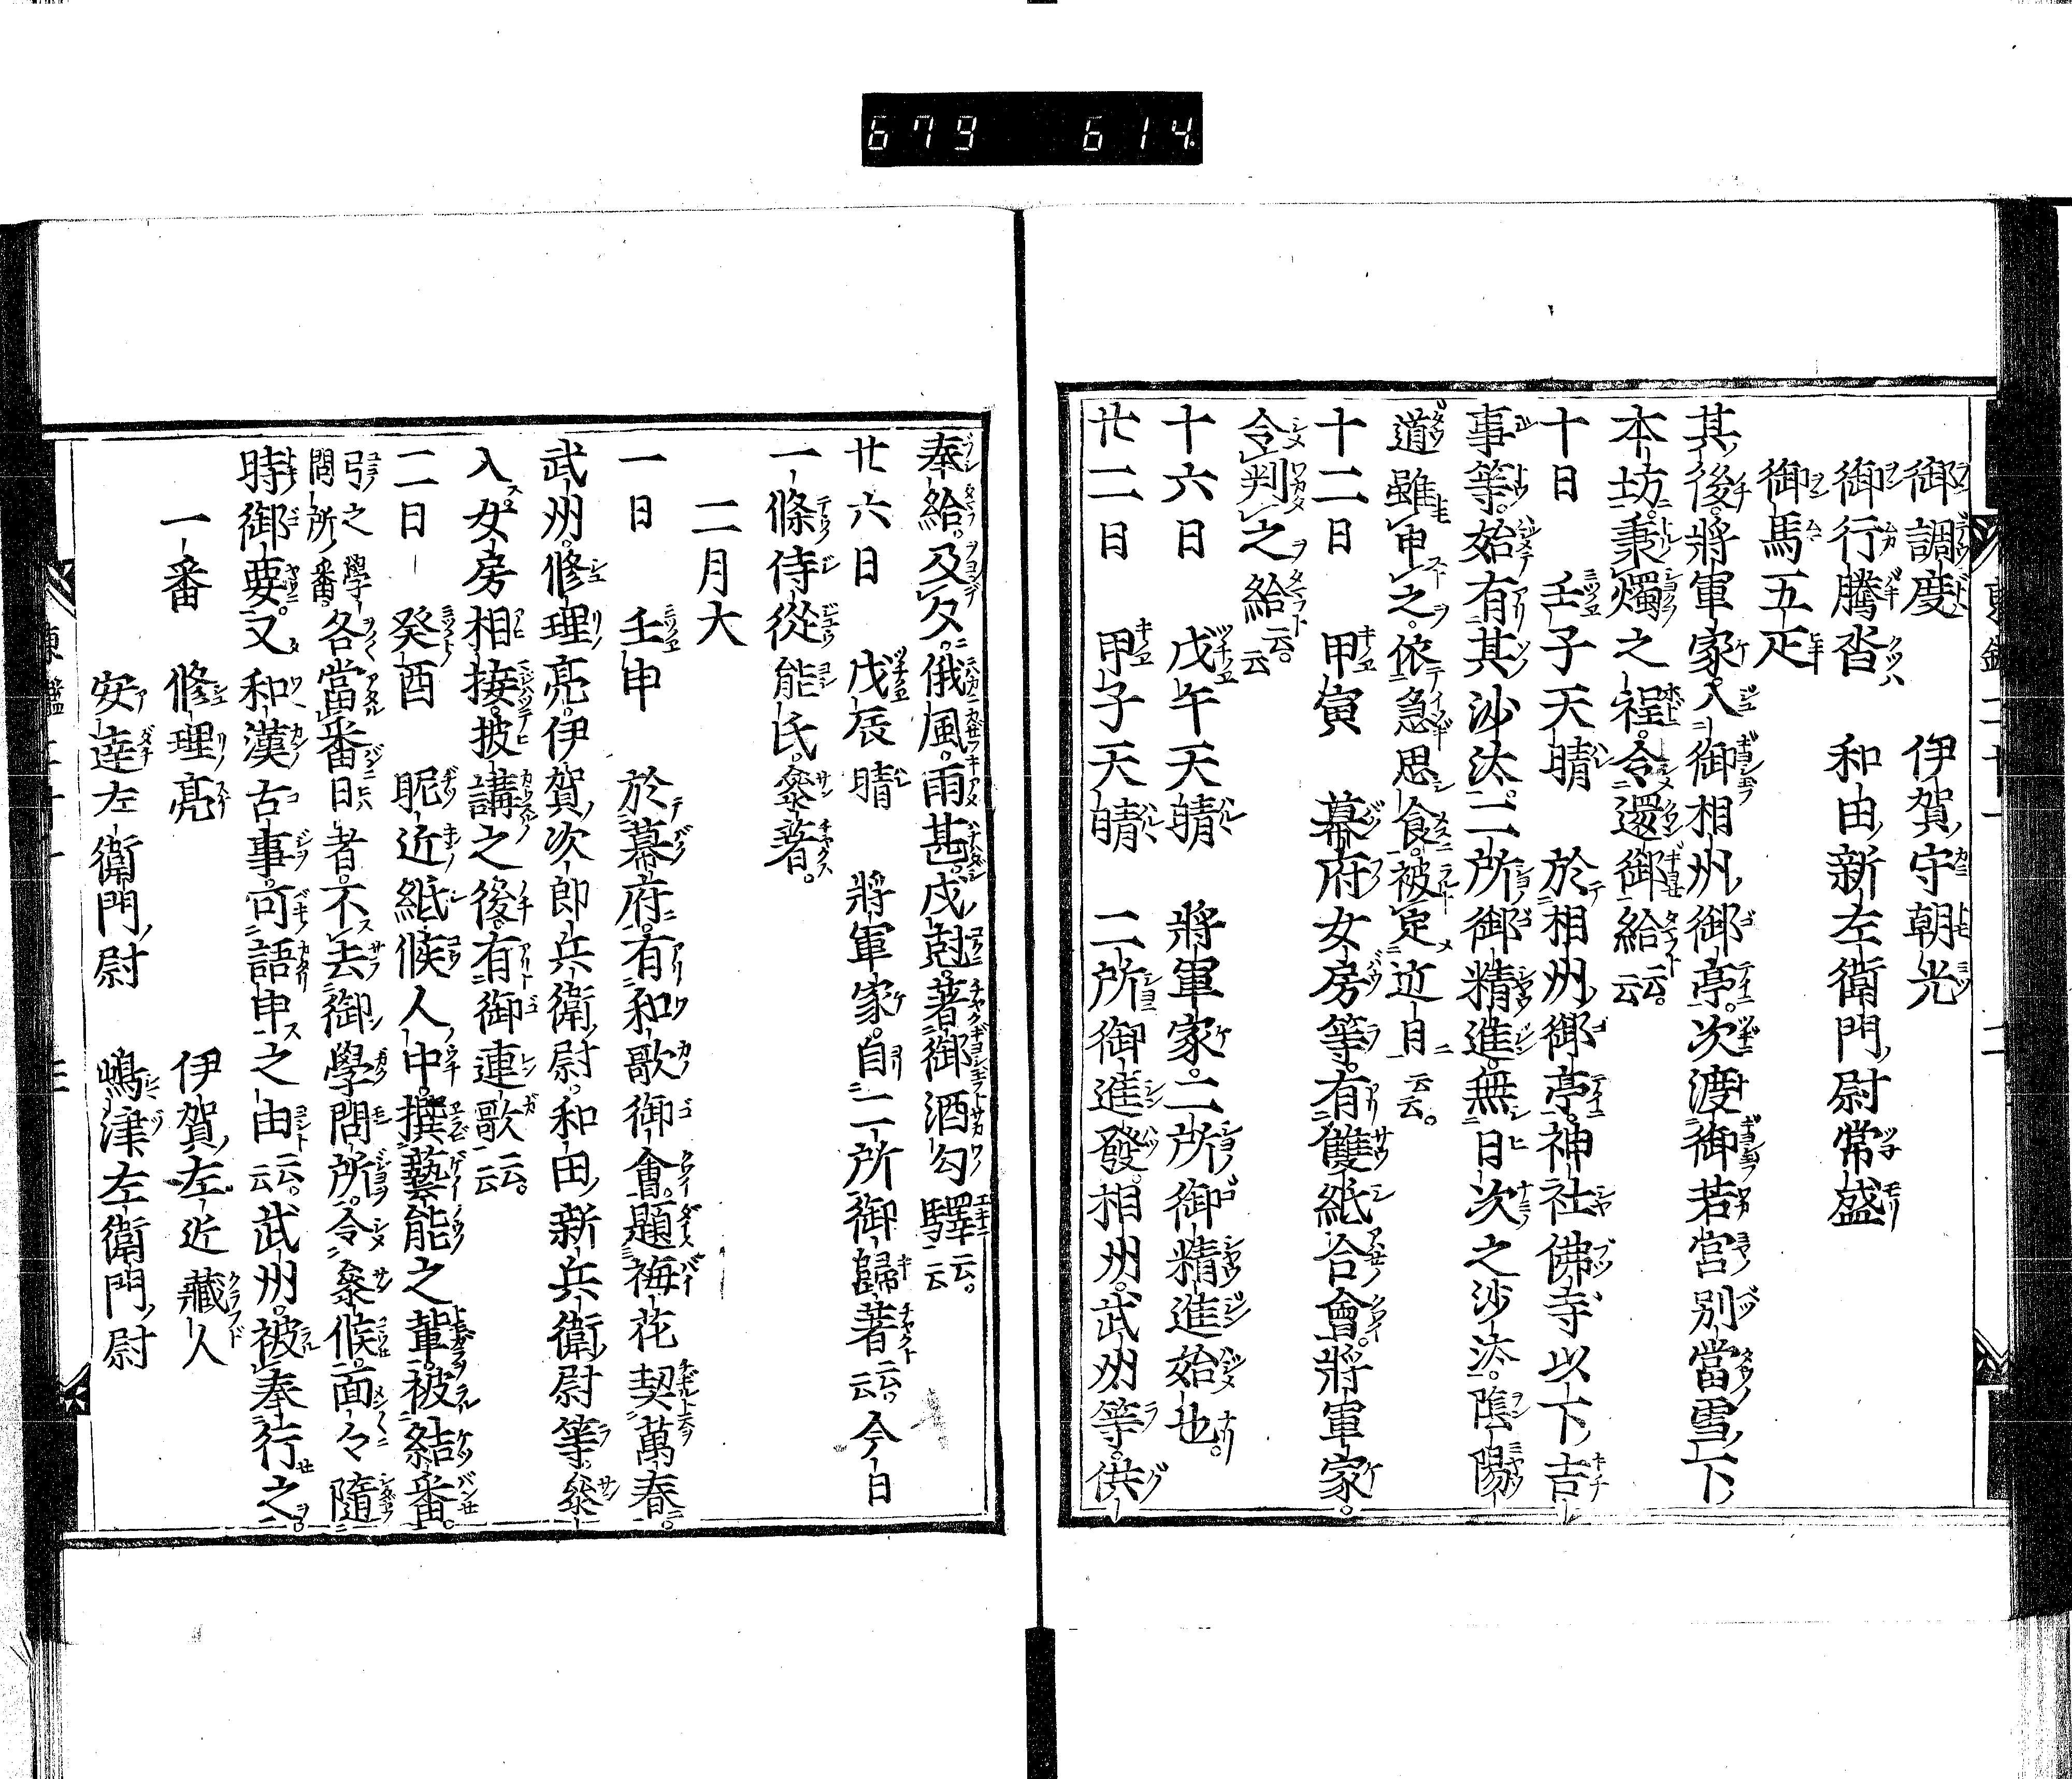 679 614
御調度 伊賀守朝光
御行騰沓 和田新左衛門尉常盛
御馬五疋
其後將軍家入御相州御亭次渡御若宮別當雪下
本坊秉燭之程令還御給云云
十日 壬子天晴 於相州御亭神社佛寺以下吉
事等始有其沙汰二所御精進無日次之沙汰陰陽
道雖申之依急思食被定近日云云
十二日 甲寅 幕府女房等有雙紙合會將軍家
令判之給云云
十六日 戊午天晴 將軍家二所御精進始也
廿二日 甲子天晴 二所御進發相州武州等供
奉給及夕俄風雨甚戌尅著御酒匂驛云云
廿六日 戊辰晴 將軍家自二所御歸著云云今日
一條侍從能氏參著
二月大
一日 壬申 於幕府有和歌御會題梅花契萬春
武州修理亮伊賀次郎兵衛尉和田新兵衛尉等參
入女房相接披講之後有御連歌云云
二日 癸酉 昵近祗候人中撰藝能之輩被結番
号之學問所番各當番日者不去御學問所令參候面々隨
時御要又和漢古事可語申之由云云武州被奉行之
一番 修理亮 伊賀左近藏人
安達左衛門尉 嶋津左衛門尉